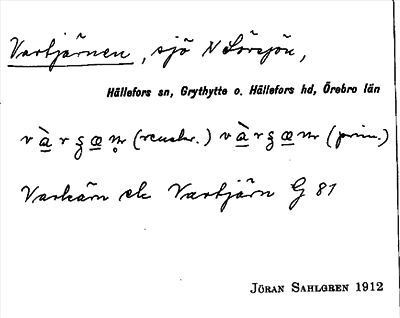 Vartjärnen, sjö N Sörsjön,
Hällefors sn, Grythytte o. Hällefors hd, Örebro län
(renskr.) (prim.)
Varkärn el. Vartjärn G 81
JÖRAN SAHLGREN 1912